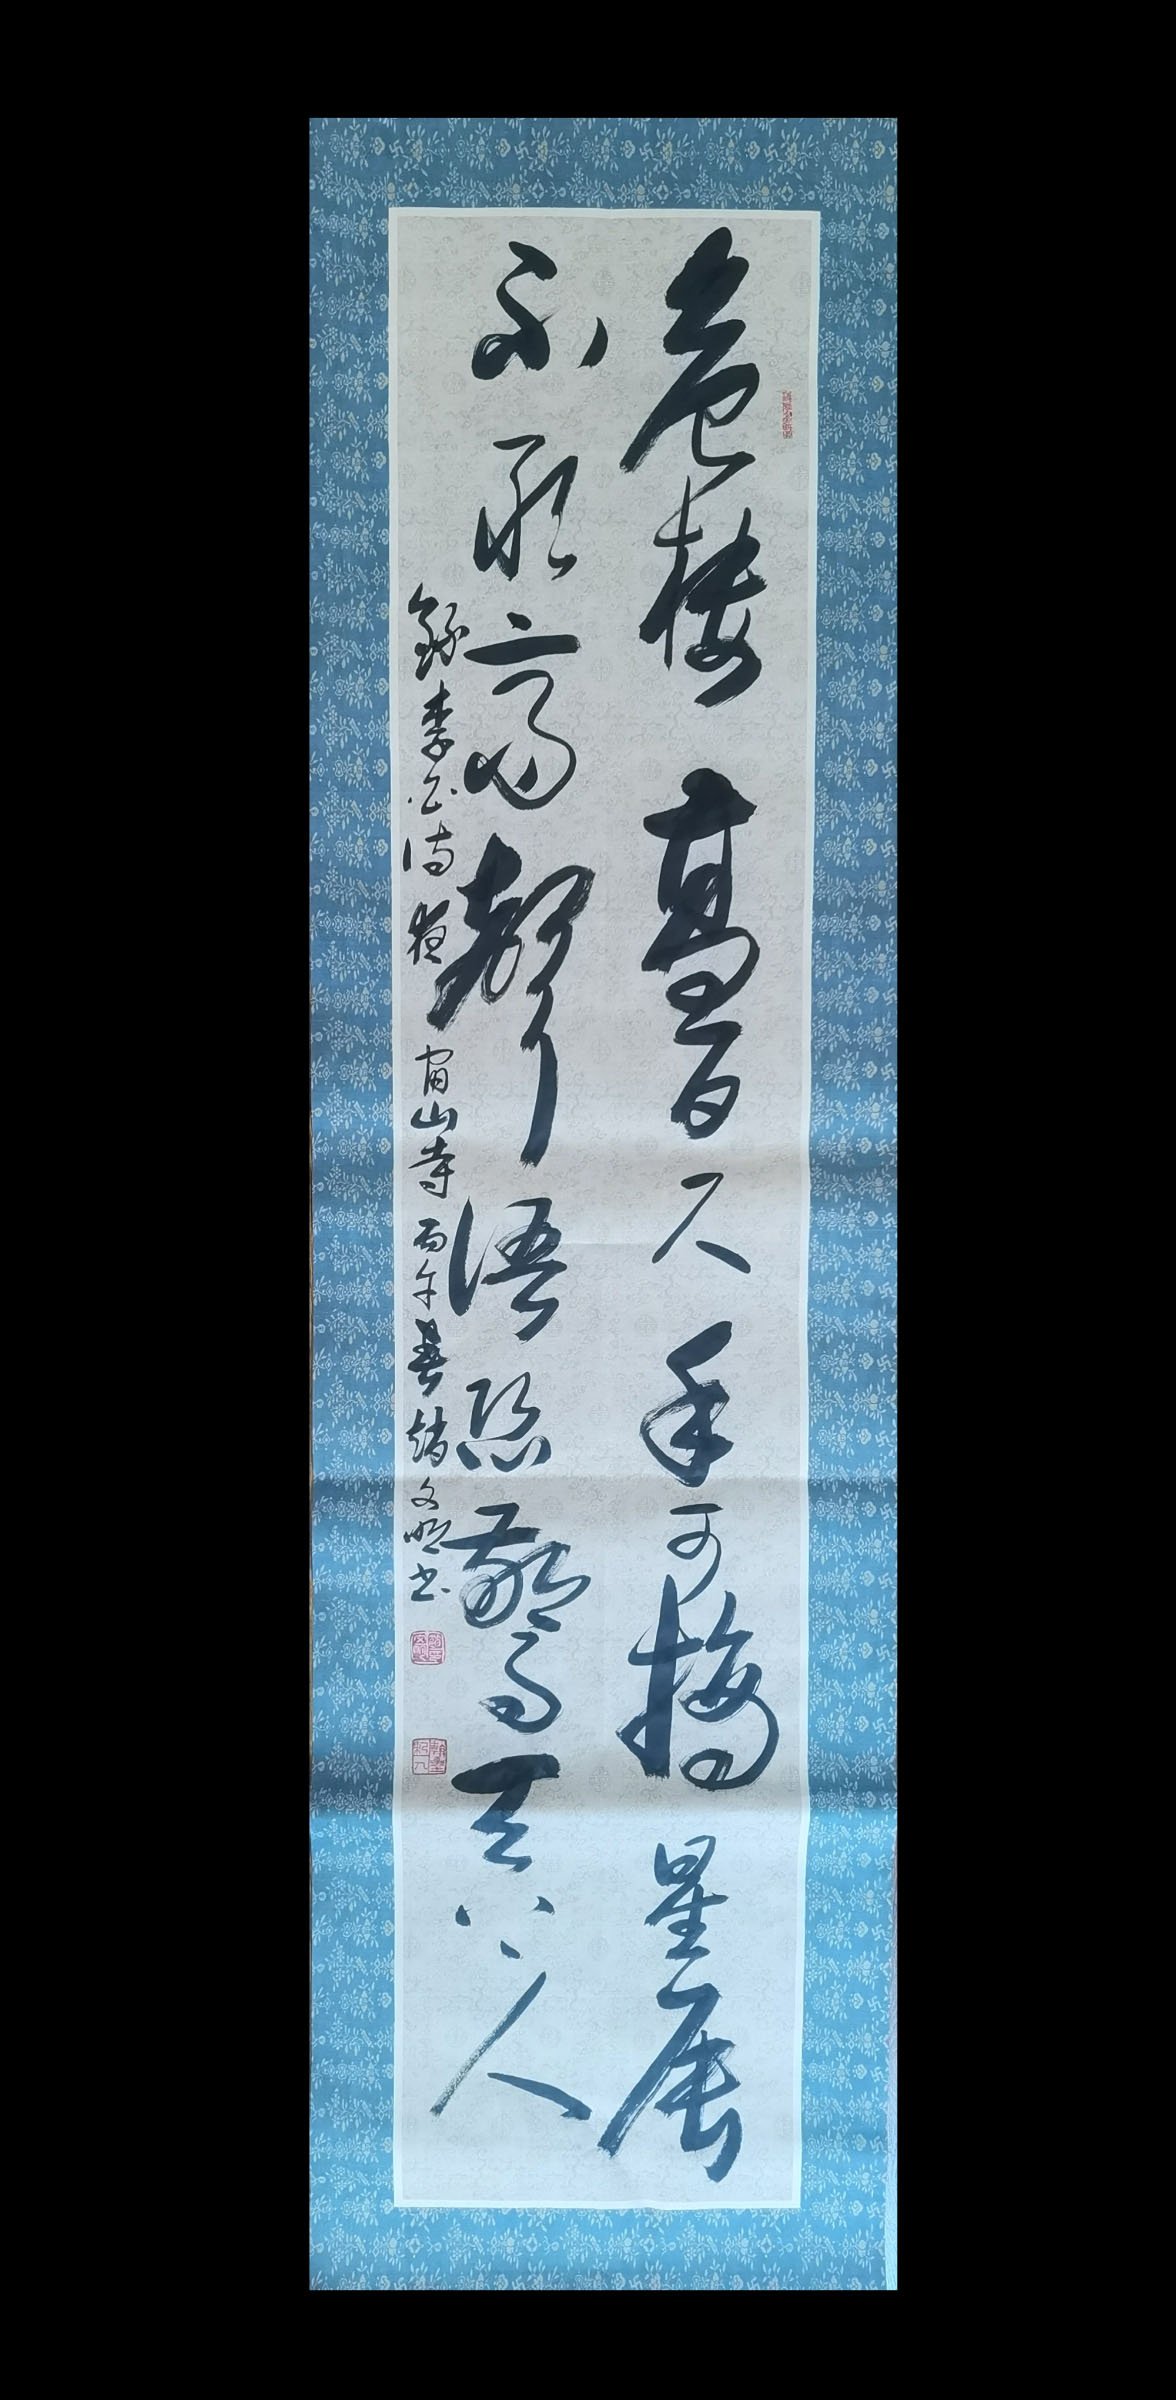 危樓高百尺手可摘星辰
不敢高聲語恐驚天上人
錄李白詩夜宿山寺丙午春趙文明書